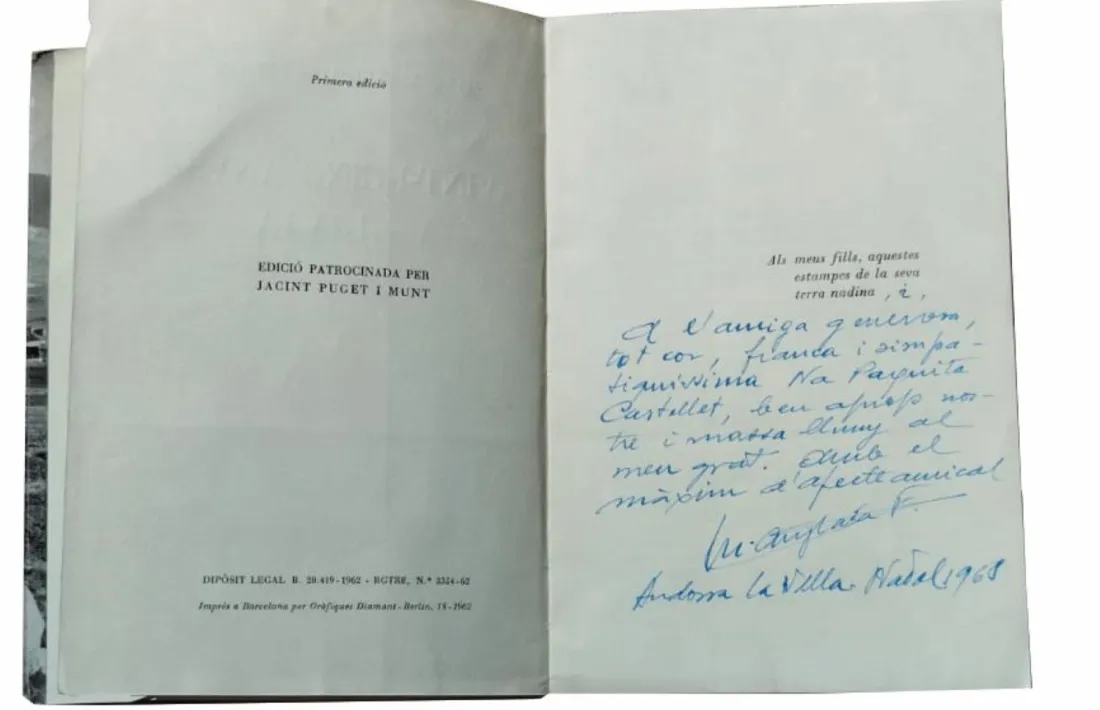 Primera edició
EDICIÓ PATROCINADA PER
JACINT PUGET I MUNT
DIPÒSIT LEGAL B. 20.419-1962 - RGTRE, N.º 3324-62
Imprès a Barcelona per Gràfiques Diamant - Berlín, 18-1962
Als meus fills, aquestes
estampes de la seva
terra nadina , i,
A l'amiga generosa,
tot cor, franca i simpa-
tiquissima Na Paquita
Castellet, ben aprop nos-
tre i massa lluny al
meu grat. Amb el
màxim d'afecte amical
M. Anglada F.
Andorra la Vella. Nadal 1968